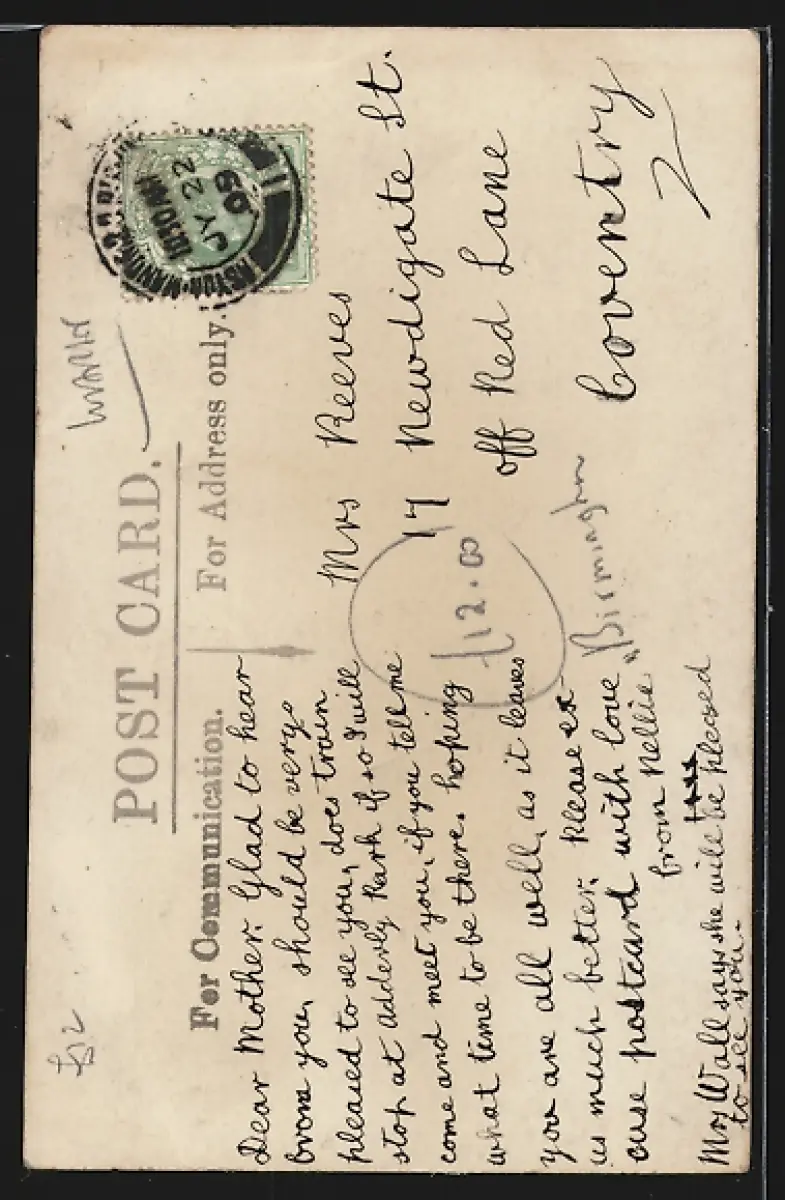 £12
POST CARD.
For Communication.
For Address only.
ASTON
10.30 AM
JY 22
09
11
Dear Mother. Glad to hear
from you, should be very
pleased to see you, does train
stop at Adderly Park if so I will
come and meet you, if you tell me
what time to be there. hoping
you are all well, as it leaves
us much better. Please ex-
cuse postcard with love
from Nellie
Mrs Wall says she will be pleased
to see you.
Mrs Reeves
17 Newdigate St.
off Red Lane
Coventry
£12.00
"Birmingham